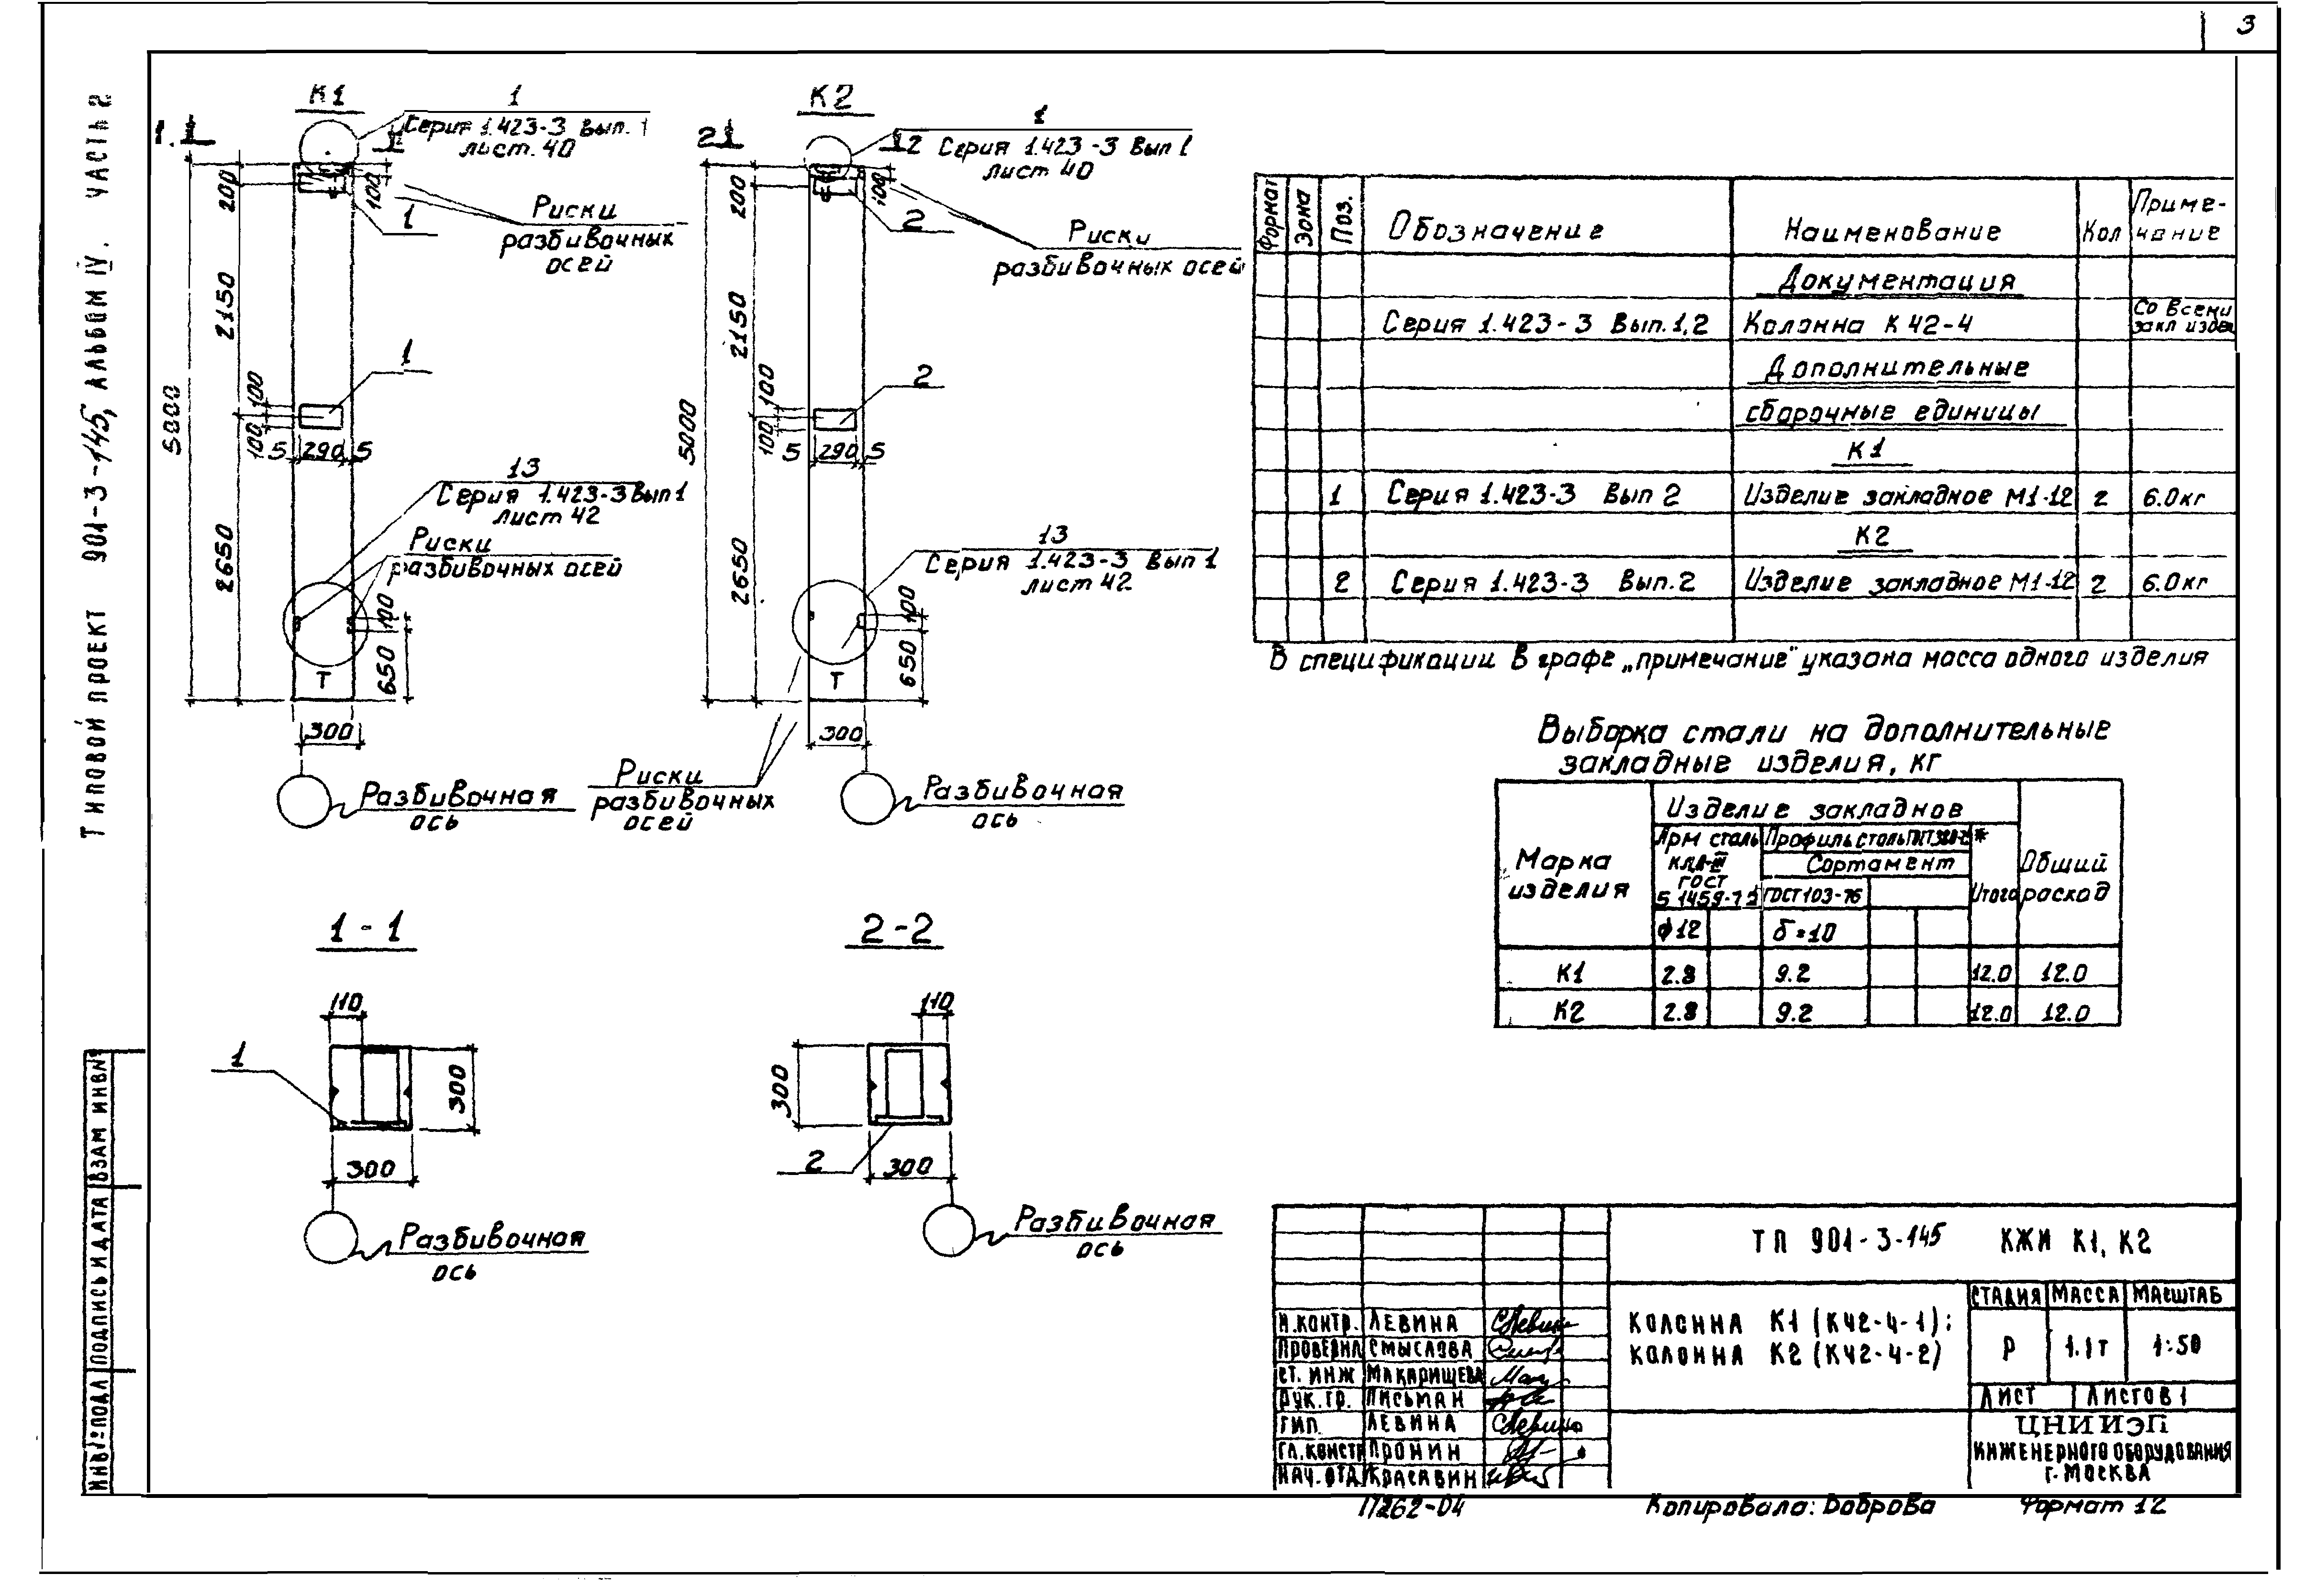 3
Типовой проект 901-3-145, Альбом IV. Часть 2
К1
1
Серия 1.423-3 Вып. 1
лист. 40
200
100
1
Риски
разбивочных
осей
2150
1
100
100
5 290 5
5000
13
Серия 1.423-3 Вып 1
лист 42
Риски
разбивочных осей
2650
100
650
Т
300
Разбивочная
ось
К2
1
Серия 1.423-3 Вып 1
лист 40
200
100
2
Риски
разбивочных осей
2150
2
100
100
5 290 5
5000
13
Серия 1.423-3 Вып 1
лист 42
2650
100
650
Т
300
Риски
разбивочных
осей
Разбивочная
ось
1-1
110
1
300
300
Разбивочная
ось
2-2
110
300
2
300
Разбивочная
ось
Формат Зона Поз. Обозначение Наименование Кол Приме-
чание
Документация
Серия 1.423-3 Вып. 1,2 Колонна К42-4 Со всеми
закл издел
Дополнительные
сборочные единицы
К1
1 Серия 1.423-3 Вып 2 Изделие закладное М1-12 2 6.0кг
К2
2 Серия 1.423-3 Вып. 2 Изделие закладное М1-12 2 6.0кг
В спецификации в графе „примечание" указана масса одного изделия
Выборка стали на дополнительные
закладные изделия, кг
Марка
изделия
Изделие закладнов
Арм сталь
кл.А-III
ГОСТ
5 1459-72
Профиль сталь
Сортамент
ГОСТ 103-76
Итого
Общий
расход
ф12 δ=10
К1 2.8 9.2 12.0 12.0
К2 2.8 9.2 12.0 12.0
ТП 901-3-145 КЖИ К1, К2
Колонна К1 (К42-4-1);
Колонна К2 (К42-4-2)
Стадия Масса Масштаб
Р 1.1т 1:50
Лист Листов 1
ЦНИИЭП
инженерного оборудования
г. Москва
Н.контр. Левина
Проверил Смыслова
Ст. инж Макарищева
Рук. гр. Письман
ГИП Левина
Гл. констр Пронин
Нач. отд Красавин
Инв № подл Подпись и дата Взам инв №
17262-04 Копировала: Доброва Формат 12